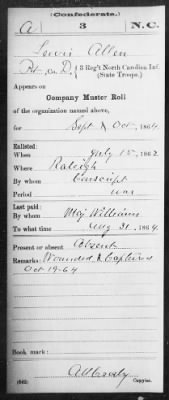 (Confederate.)
A 3 N.C.
Lewis Allen
Pvt, Co. D, 3 Reg't North Carolina Inf.
(State Troops.)
Appears on
Company Muster Roll
of the organization named above,
for Sept & Oct, 1864.
Enlisted:
When July 15, 1862
Where Raleigh
By whom Conscript
Period war
Last paid:
By whom Maj Williams
To what time Aug 31, 1864.
Present or absent Absent
Remarks: Wounded & Captured
Oct 19-64
Book mark:
(642)
Copyist.